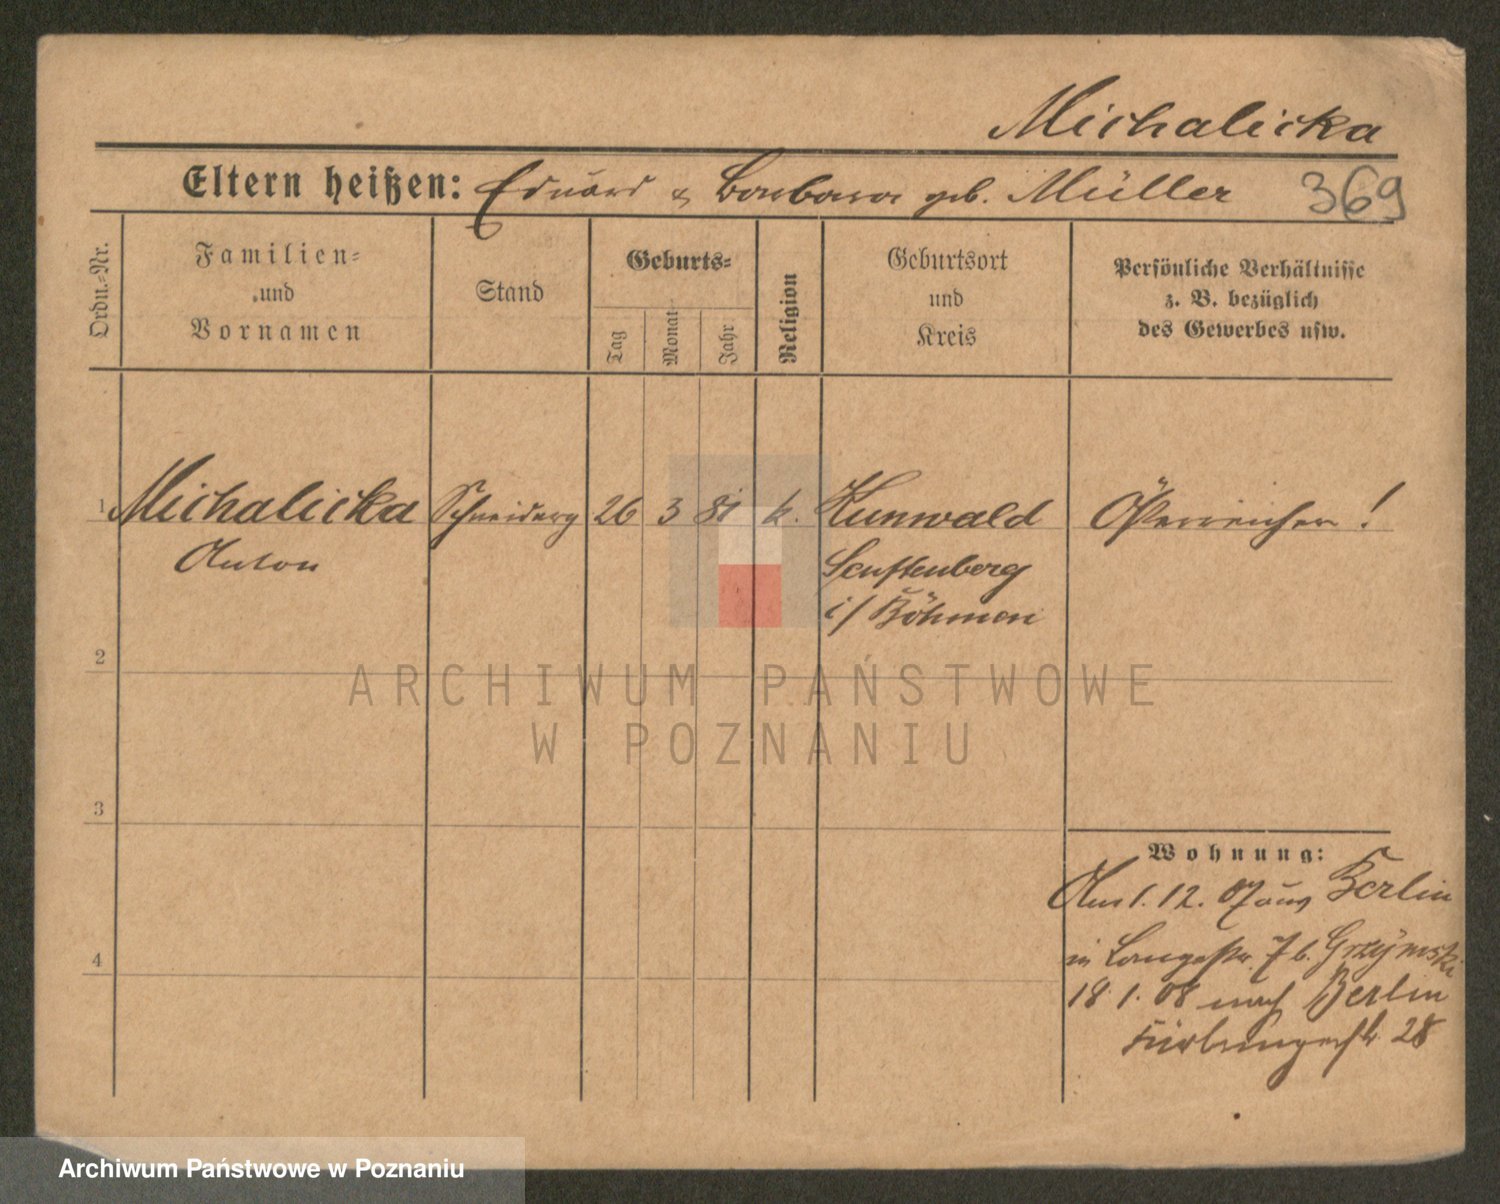 Michalicka
Eltern heißen: Eduard & Barbara geb. Müller 369
Ordn.-Nr.
Familien-
und
Vornamen
Stand
Geburts-
Tag
Monat
Jahr
Religion
Geburtsort
und
Kreis
Persönliche Verhältnisse
z. B. bezüglich
des Gewerbes usw.
1 Michalicka Schneiderg 26 3 81 k. Kunwald Österreicher!
Anton Senftenberg
i/ Böhmen
2
ARCHIWUM PAŃSTWOWE
W POZNANIU
3
Wohnung:
Am 1. 12. 07 aus Berlin
in Langestr. 7 b. Grzymski
4
18. 1. 08 nach Berlin
28
Archiwum Państwowe w Poznaniu